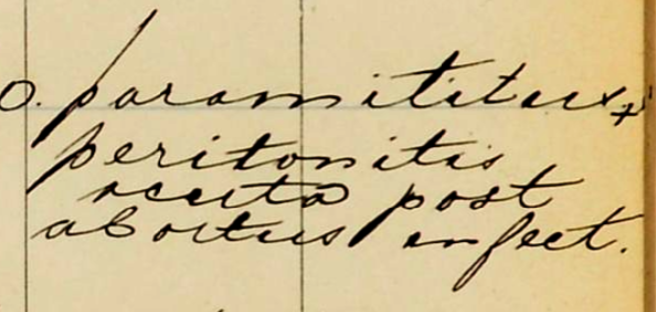 o. paramititus +
peritonitis
acuta post
abortus infect.